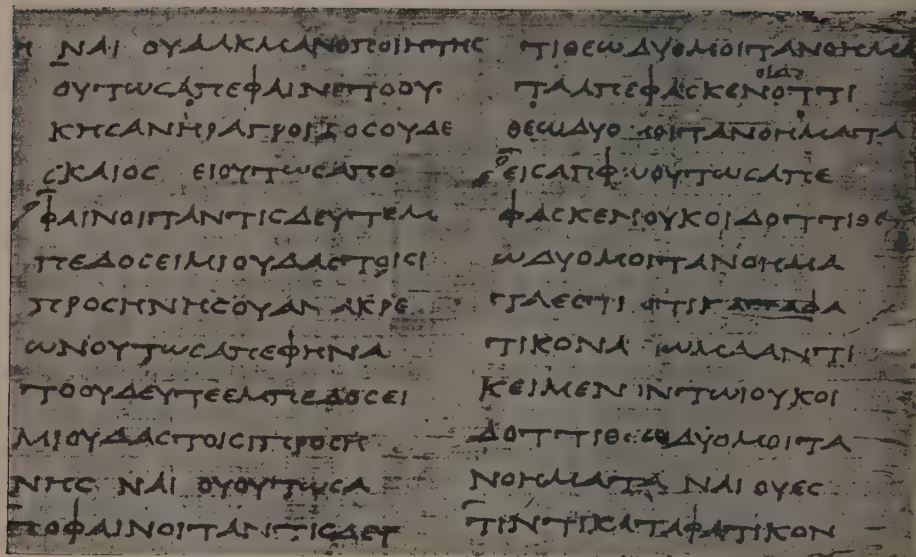 ΝΑΙ ΟΥΑΛΚΜΑΝΟΠΟΙΗΤΗϹ
ΟΥΤΩϹΑΠΕΦΑΙΝΕΤΟΟΥΚ
ΚΗϹΑΝΗΡΑΓΡΟΙΚΟϹΟΥΔΕ
ϹΚΑΙΟϹ ΕΙΟΥΤΩϹΑΠΟ
ΦΑΙΝΟΙΤΑΝΤΙϹΔΕΥΤΕΜ
ΠΕΔΟϹΕΙΜΙΟΥΔΑϹΤΟΙϹΙ
ΠΡΟϹΗΝΗϹΟΥΑΝΑΚΡΕ
ΩΝΟΥΤΩϹΑΠΕΦΗΝΑ
ΤΟΟΥΔΕΥΤΕΕΜΠΕΔΟϹΕΙ
ΜΙΟΥΔΑϹΤΟΙϹΙΠΡΟϹΗ
ΝΗϹ ΝΑΙ ΟΥΟΥΤΩϹΑ
ΠΟΦΑΙΝΟΙΤΑΝΤΙϹΔΕΥ
ΤΙΘΕΩΔΥΟΜΟΙΤΑΝΟΗΜΑ
ΤΑΑΠΕΦΑϹΚΕΝΟΤΤΙ
ΘΕΩΔΥΟ ΜΟΙΤΑΝΟΗΜΑΤΑ
ΕΙϹΑΠΦΩΟΥΤΩϹΑΠΕ
ΦΑϹΚΕΝΟΥΚΟΙΔΟΤΤΙΘΕ
ΩΔΥΟΜΟΙΤΑΝΟΗΜΑ
ΤΑΕϹΤΙ
ΤΙΚΟΝΑΞΙΩΜΑΑΝΤΙ
ΚΕΙΜΕΝΟΝΤΩΙΟΥΚΟΙ
ΔΟΤΤΙΘΕΩΔΥΟΜΟΙΤΑ
ΝΟΗΜΑΤΑ ΝΑΙ ΟΥΕϹ
ΤΙΝΤΙΚΑΤΑΦΑΤΙΚΟΝ